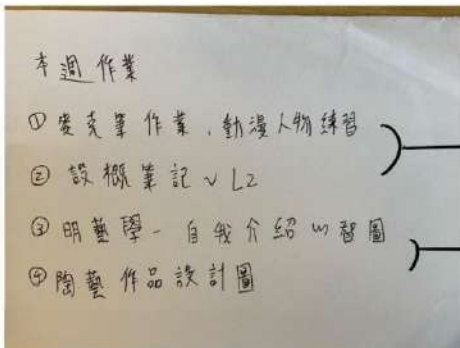 本週作業
① 麥克筆作業、動漫人物練習
② 設概筆記 ✓ L2
③ 明藝學 - 自我介紹心智圖
④ 陶藝作品設計圖